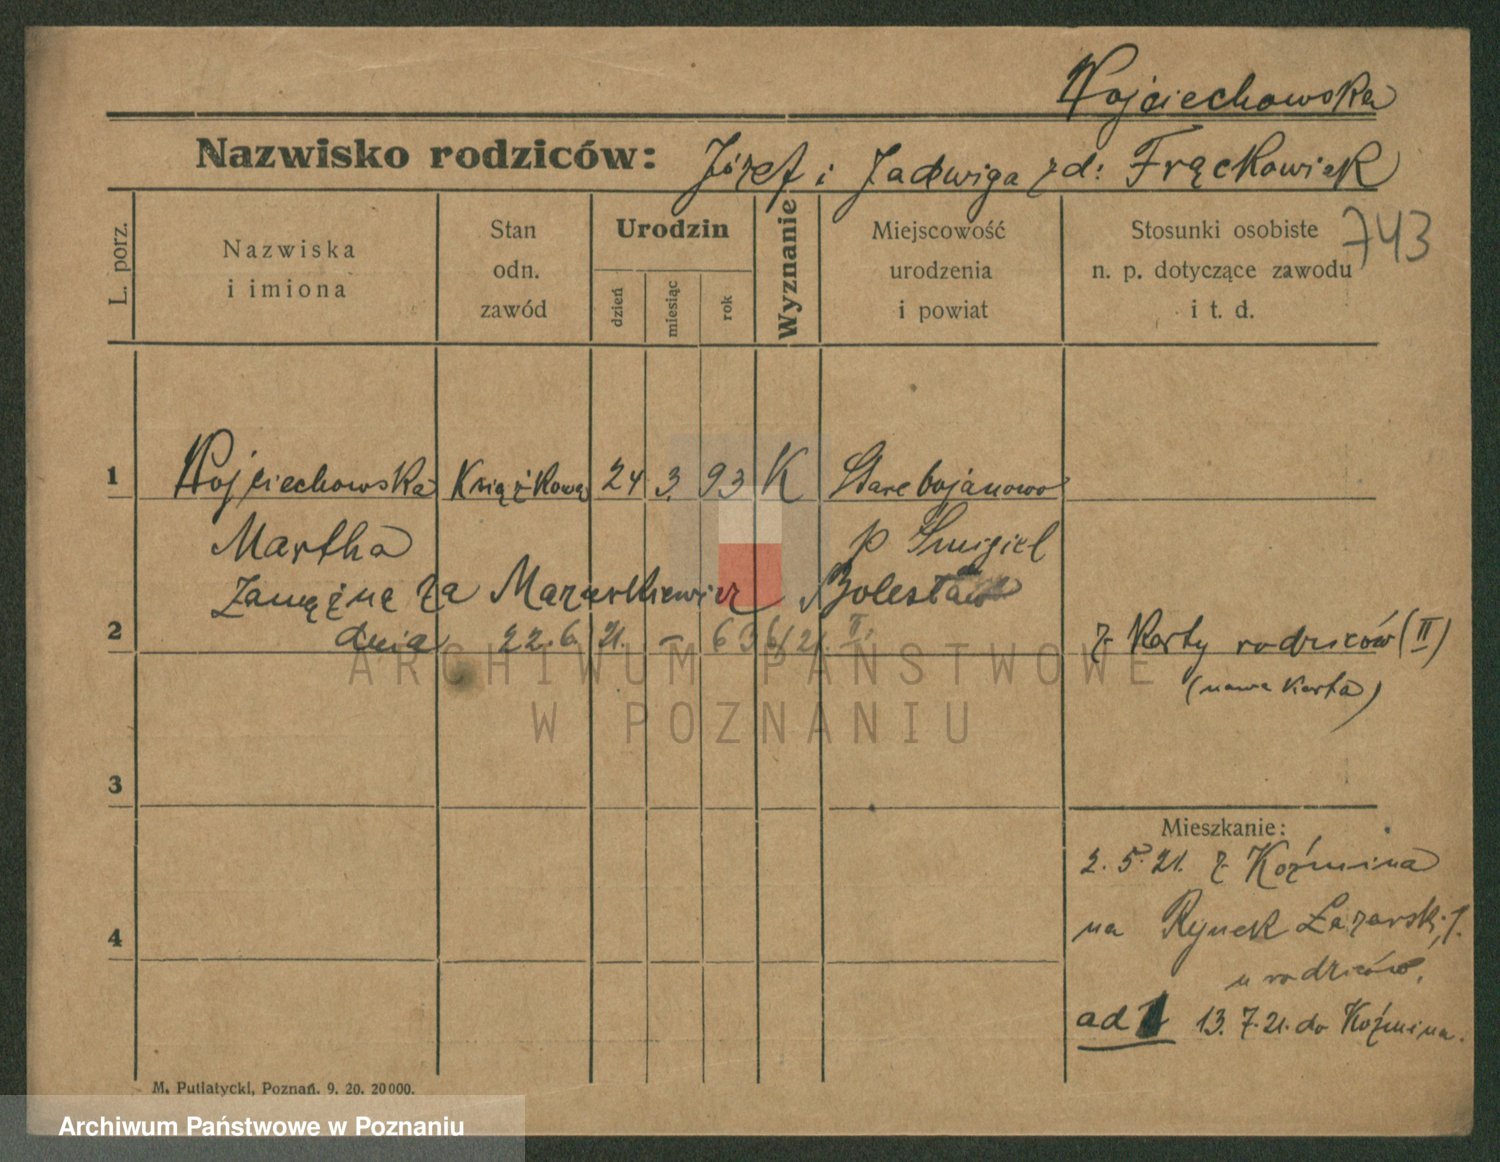 Wojciechowska
Nazwisko rodziców: Józef i Jadwiga zd: Frąckowiak
743
L. porz.
Nazwiska
i imiona
Stan
odn.
zawód
Urodzin
dzień
miesiąc
rok
Wyznanie
Miejscowość
urodzenia
i powiat
Stosunki osobiste
n. p. dotyczące zawodu
i t. d.
1 Wojciechowska Książkowa 24 3. 93 K Starebojanowo
Martha p Śmigiel
Zamężna za Mazurkiewicz Bolesław
2 dnia 22.6.21. – 636/21. II.
z Karty rodziców (II)
(nowa karta)
ARCHIWUM PAŃSTWOWE
W POZNANIU
3
Mieszkanie:
2.5.21. z Koźmina
na Rynek Łazarski,
4
u rodziców.
ad 1 13.7.21. do Koźmina.
M. Putiatycki, Poznań. 9. 20. 20000.
Archiwum Państwowe w Poznaniu